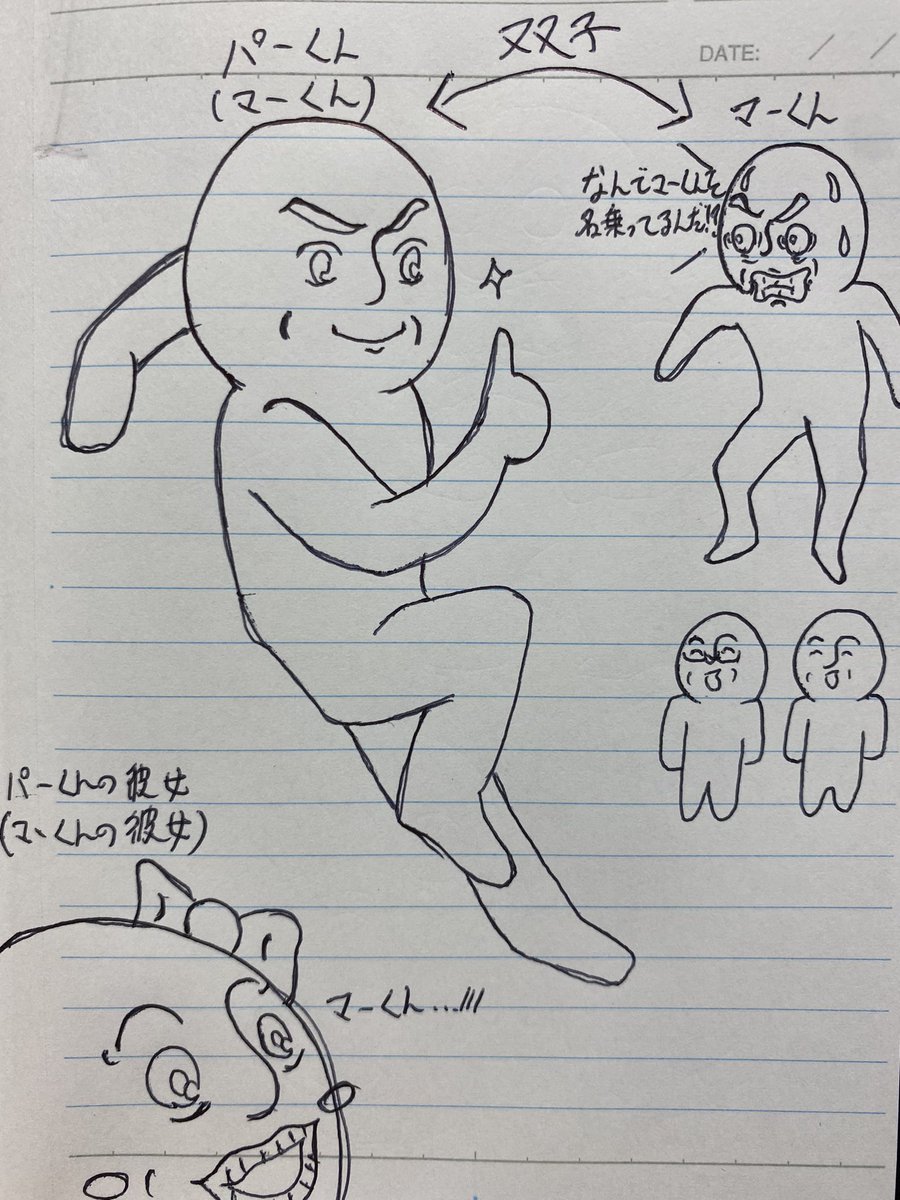 DATE: / /
パーくん
(マーくん)
双子
マーくん
なんでマーくんて
名乗ってるんだ!?
パーくんの彼女
(マーくんの彼女)
マーくん…///